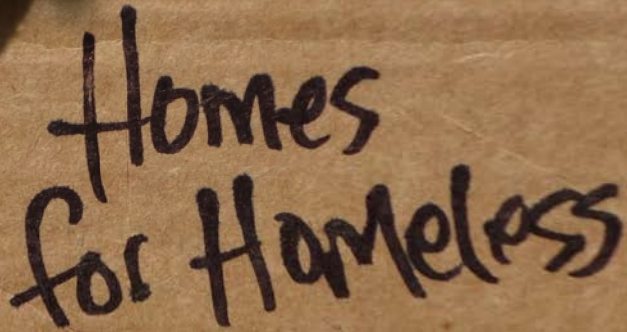 Homes
for Homeless